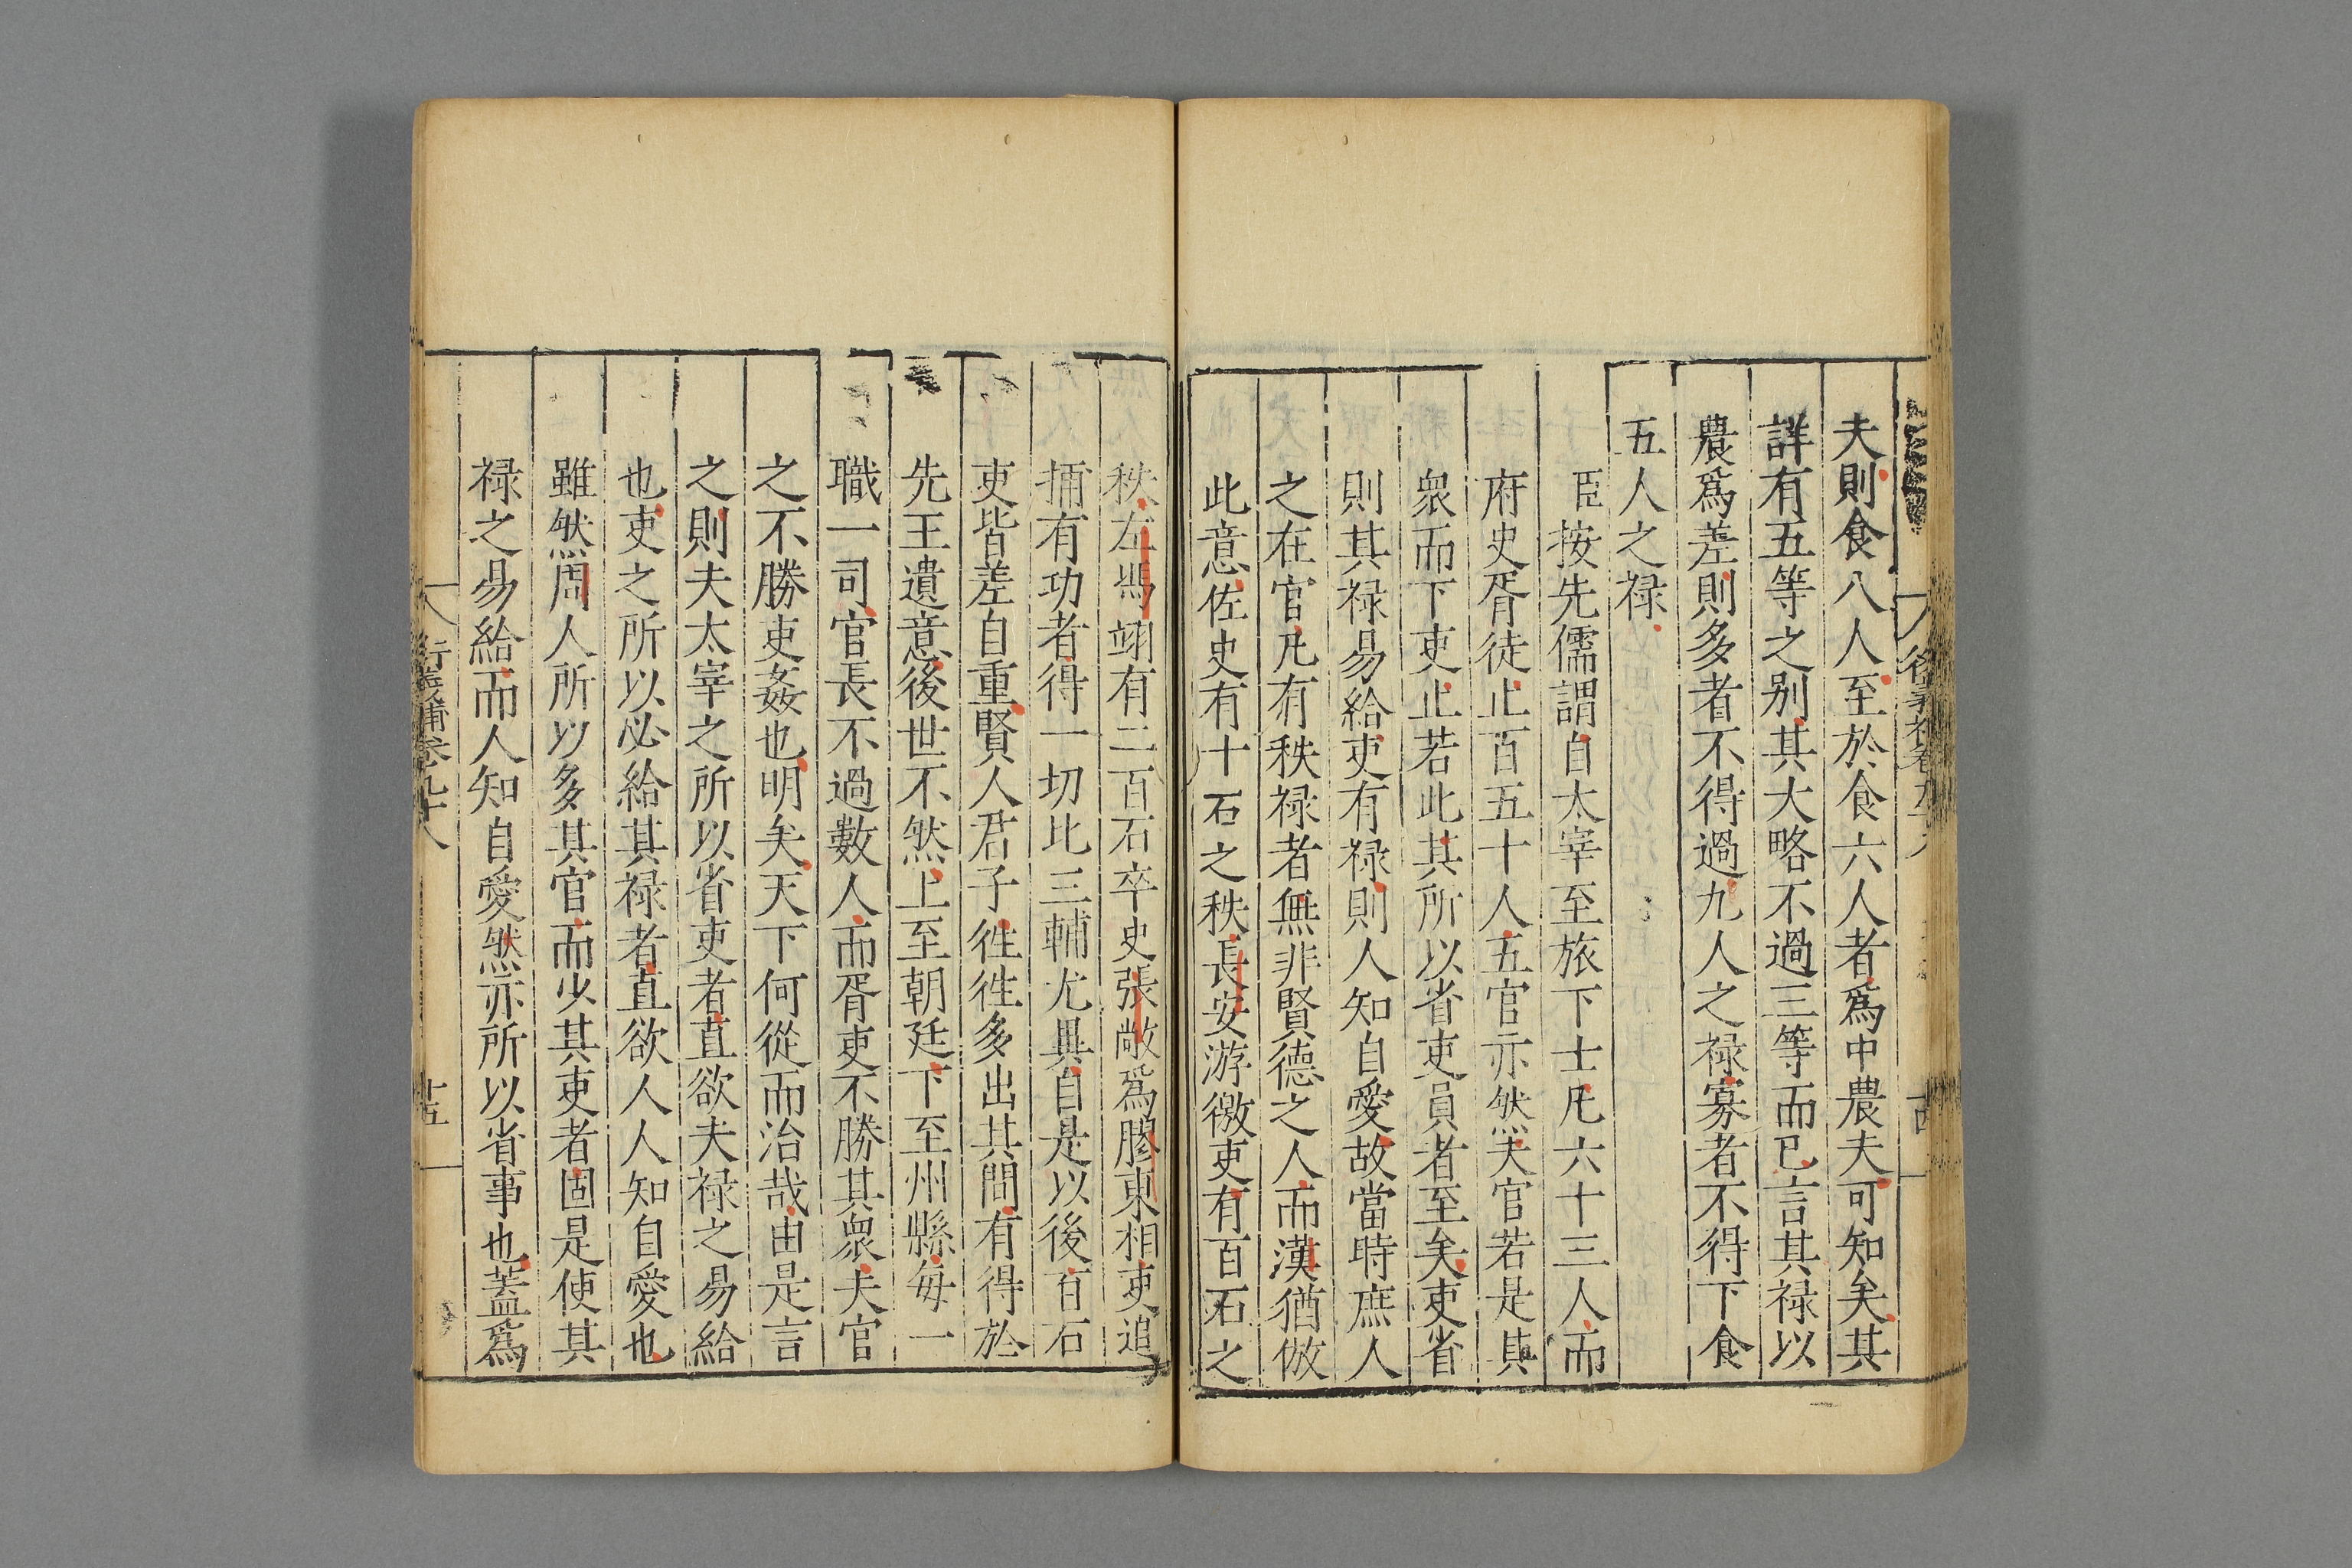 夫則食八人至於食六人者爲中農夫可知矣其
詳有五等之别其大略不過三等而已言其禄以
農爲差則多者不得過九人之禄寡者不得下食
五人之禄
臣按先儒謂自太宰至旅下士凡六十三人而
府史胥徒止百五十人五官亦然夫官若是其
衆而下吏止若此其所以省吏員者至矣吏省
則其禄易給吏有禄則人知自愛故當時庶人
之在官凡有秩禄者無非賢德之人而漢猶倣
此意佐史有十石之秩長安游徼吏有百石之
秩左馮翊有二百石卒史張敞爲膠東相吏追
捕有功者得一切比三輔尤異自是以後百石
吏皆差自重賢人君子徃徃多出其間有得於
先王遺意後世不然上至朝廷下至州縣每一
職一司官長不過數人而胥吏不勝其衆夫官
之不勝吏姦也明矣天下何從而治哉由是言
之則夫太宰之所以省吏者直欲夫禄之易給
也吏之所以必給其禄者直欲人人知自愛也
雖然周人所以多其官而少其吏者固是使其
禄之易給而人知自愛然亦所以省事也蓋爲
衍義補卷九十八
十五